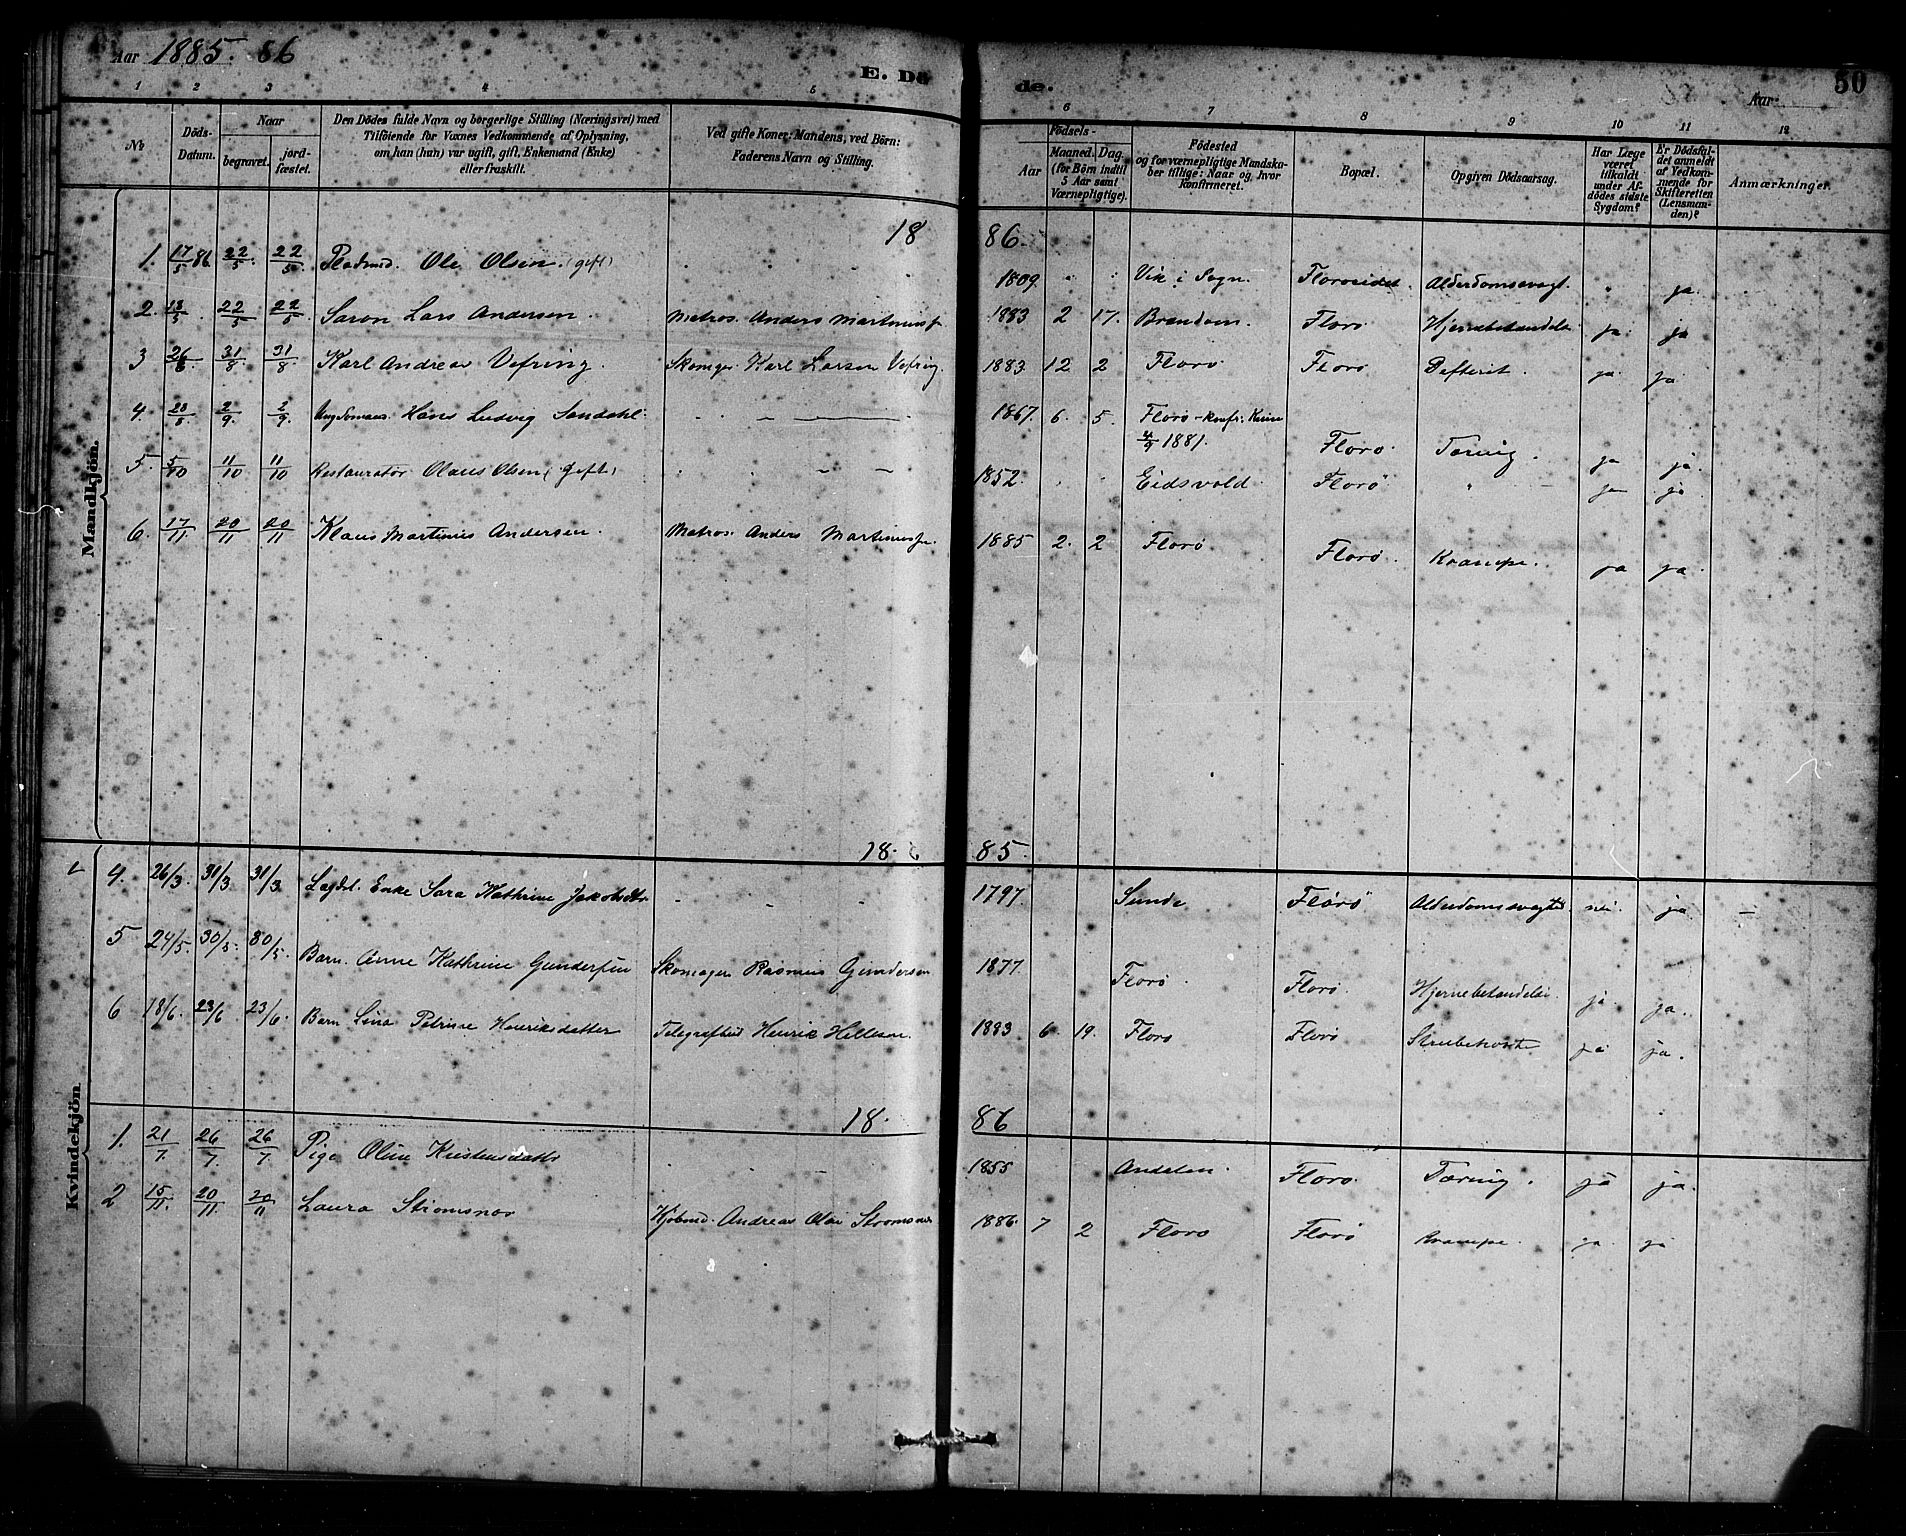 Aar 1885. 86
E. Dö de.
Aar 50
1 2 3 4 5 6 7 8 9 10 11 12
No
Döds-Datum.
Naar begravet. jord-fæstet.
Den Dödes fulde Navn og borgerlige Stilling (Næringsvei) med
Tilföiende for Voxnes Vedkommende af Oplysning,
om han (hun) var ugift, gift, Enkemand (Enke)
eller fraskilt.
Ved gifte Koner: Mandens, ved Börn:
Faderens Navn og Stilling.
Födsels-
Aar Maaned. Dag
(for Börn indtil 5 Aar samt Værnepligtige).
Födested
og for værnepligtige Mandska-
ber tillige: Naar og hvor
konfirmeret.
Bopæl.
Opgiven Dödsaarsag.
Har Læge været tilkaldt under Af-dödes sidste Sygdom?
Er Dödsfal-det anmeldt af Vedkom-mende for Skifteretten (Lensman-den)?
Anmærkninger.
Mandkjön.
18 86.
1. 17/5 86. 22/5. 22/5. Ole Olsen (gift) 1809. Vik i Sogn. Alderdomssvagh. ja
2. 13/5. 22/5 22/5 Saron Lars Andersen. Matros. Anders Martinius 1883 2 17. Florø Hjernebetændelse ja. ja
3 26/8 31/8 31/8. Karl Andreas Vefring. Skomager Karl Larsen Vefring. 1883 12 2 Florø Florø Defterit. ja. ja.
4. 2/9. 2/9. Ungdomms. Hans Ludvig Sandahl. 1867. 6. 5. Florø - konfr. Kinn
1881. Florø. Tæring. ja ja.
5. 5/10 11/10 11/10 Restauratør Olaus Olsen (gift) 1852. Eidsvold Florø " ja ja
6. 17/11. 20/11 20/11 Klaus Martinus Andersen. Matros. Anders Martinius 1885 2. 2 Florø Florø. Krampe. ja ja.
Kvindekjön
18 85.
4. 26/3. 30/3 30/3 Enke Sara Kathrine Jakobsdtr 1797. Sunde Florø Alderdomssvaghed. nei. ja
5 24/5. 30/5. 30/5. Barn. Anne Kathrine Gundersen Skomager Rasmus Gundersen 1877. Florø Florø. Hjernebetændelse. ja. ja.
6 18/6. 23/6 23/6. Barn Lina Petrine Henriksdatter Henrik 1883 6. 19. Florø Florø Strubehoste ja ja.
18. 86
1. 21/7. 26/7. 26/7. Pige Oline Kristensdatter 1855 Florø. Tæring. ja ja.
2 15/11. 20/11. 20/11 Laura Strømsnæs Kjøbmd. Andreas Olai Strømsnæs 1886. 7 2 Florø Florø Krampe. ja. ja